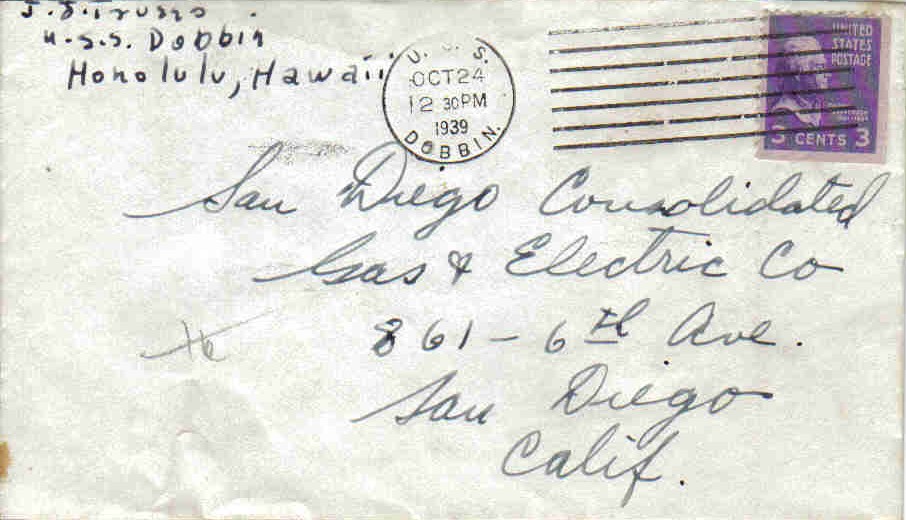 U.S.S. Dobbin
Honolulu, Hawaii
U. S. S.
OCT 24
12 30 PM
1939
DOBBIN.
UNITED
STATES
POSTAGE
3 CENTS 3
San Diego Consolidated
Gas & Electric Co
861 - 6th Ave.
San Diego
Calif.